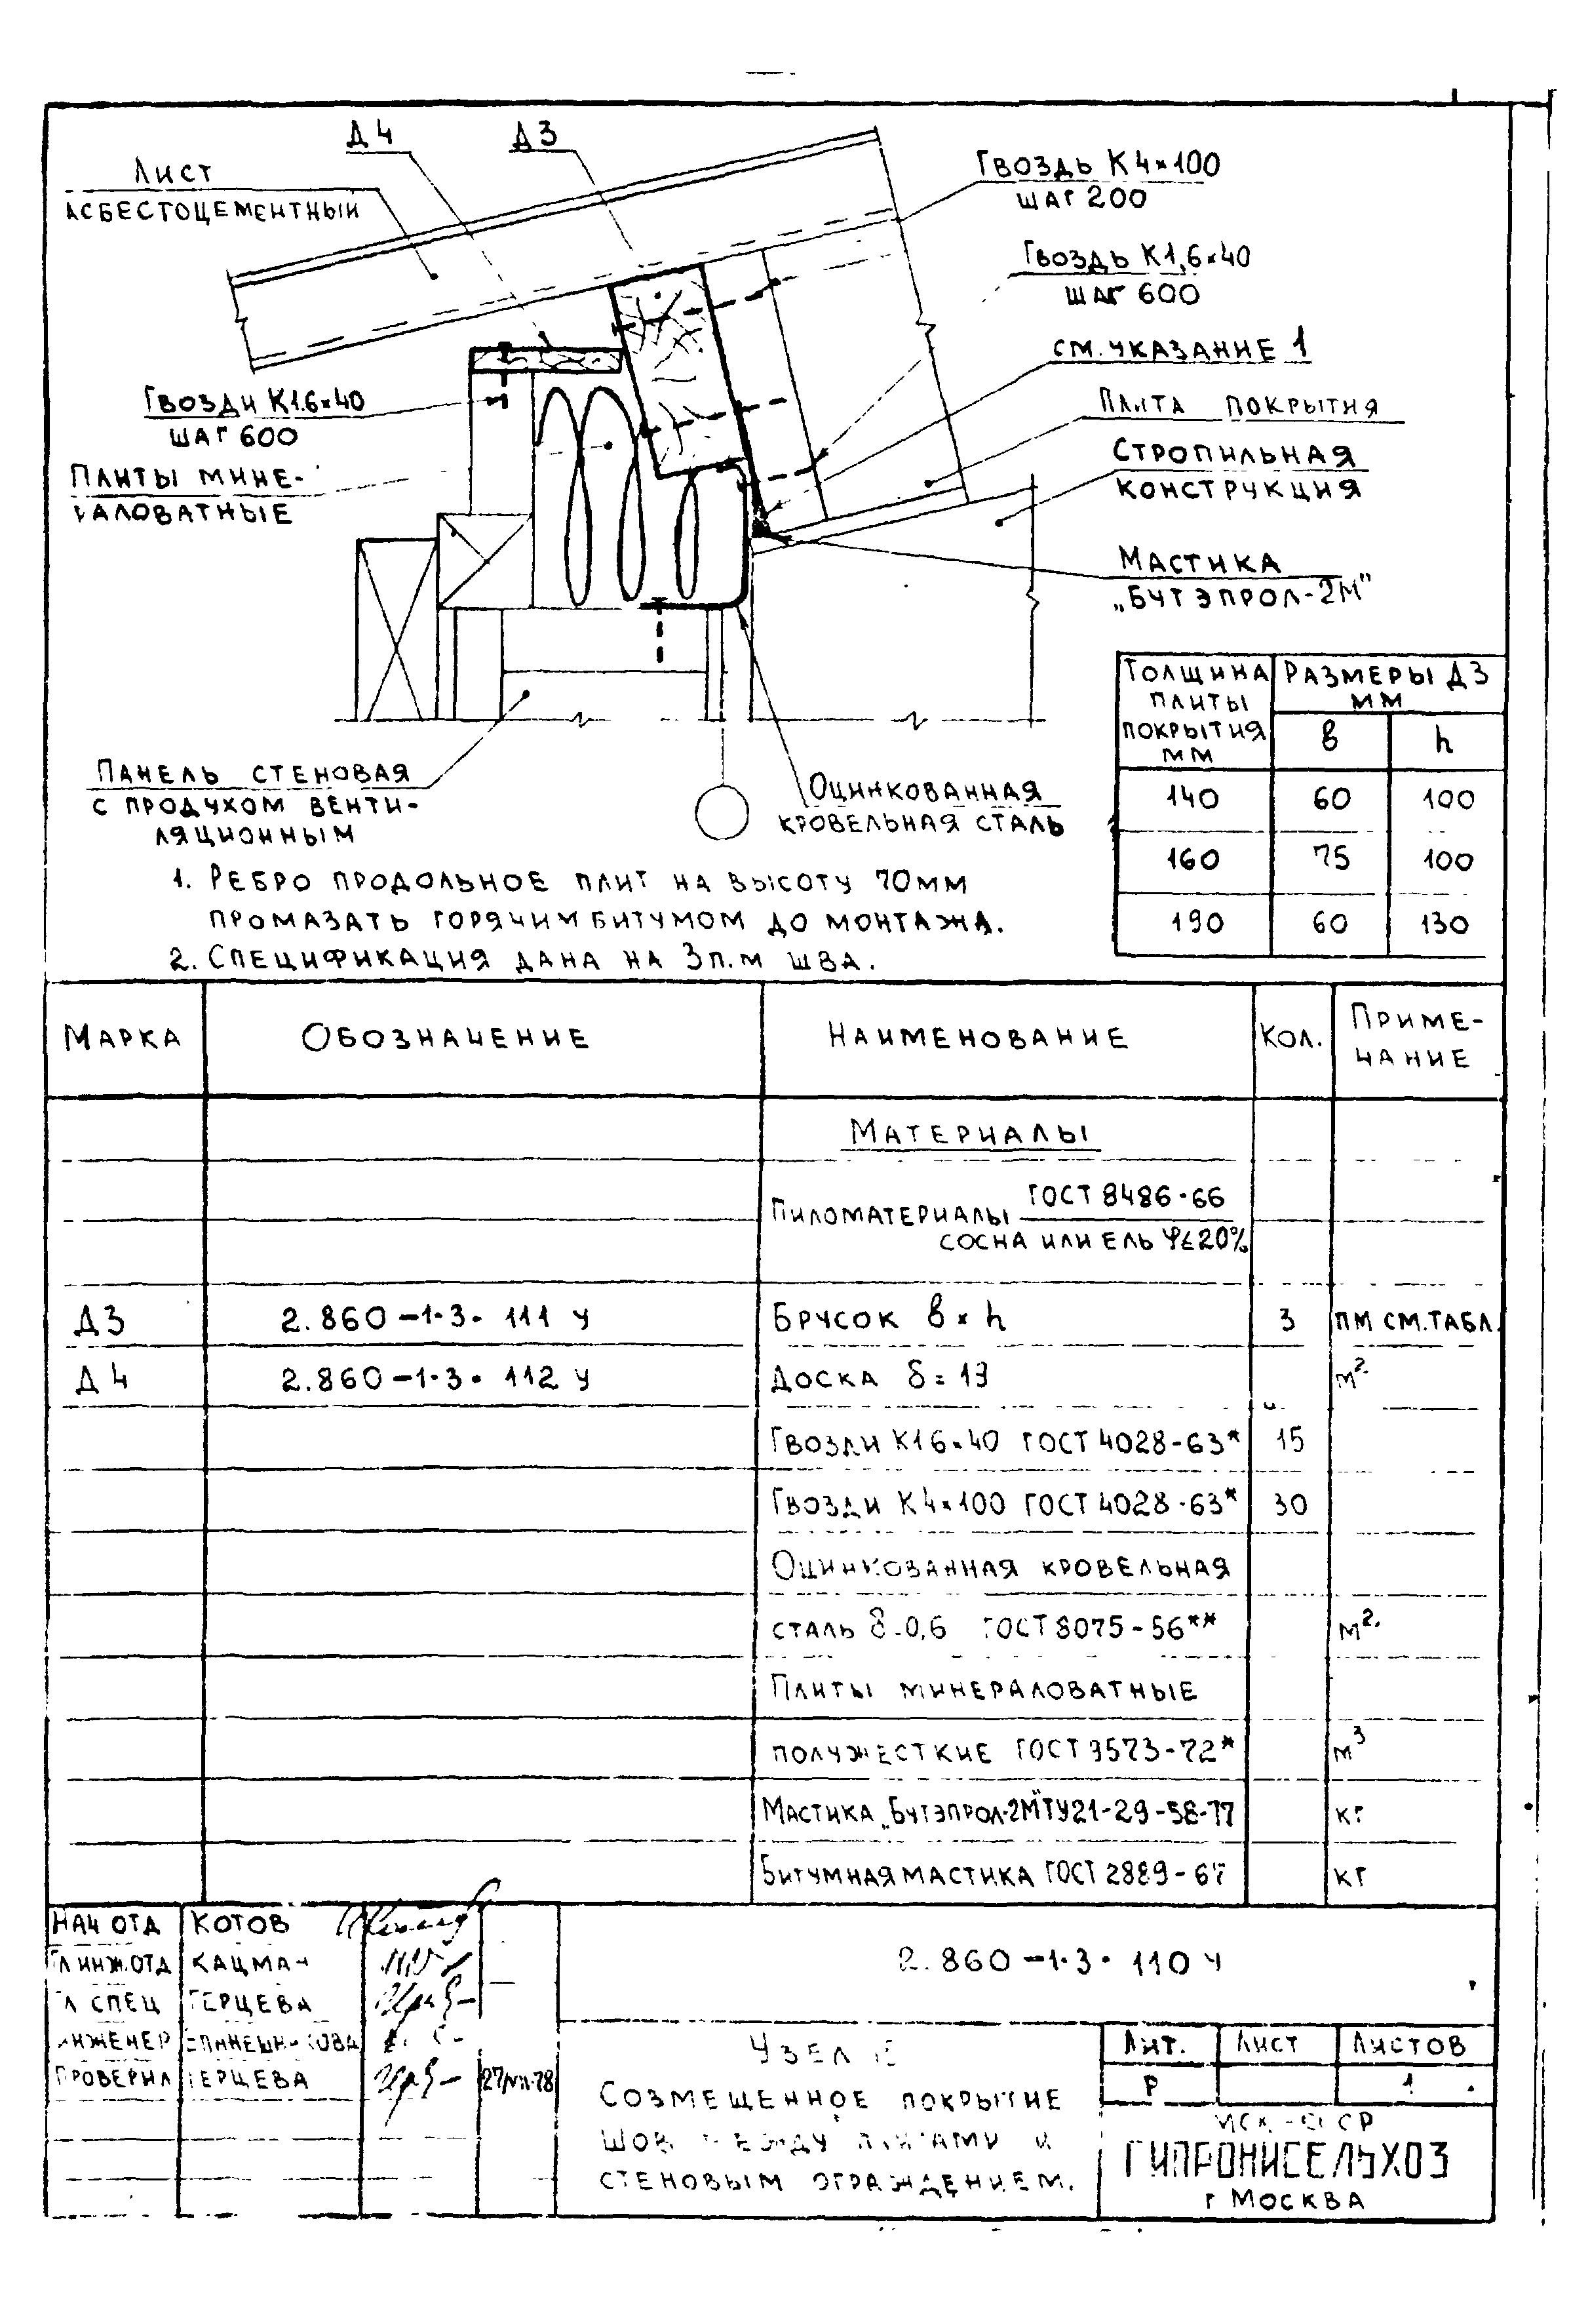 Д4
Д3
Лист
асбестоцементный
Гвоздь К4×100
шаг 200
Гвоздь К1,6×40
шаг 600
см. указание 1
Плита покрытия
Стропильная
конструкция
Гвозди К1.6×40
шаг 600
Плиты мине-
раловатные
Мастика
„Бутэпрол-2М"
Панель стеновая
с продухом венти-
ляционным
Оцинкованная
кровельная сталь
Толщина плиты покрытия мм
Размеры Д3 мм
в h
140 60 100
160 75 100
190 60 130
1. Ребро продольное плит на высоту 70мм
промазать горячим битумом до монтажа.
2. Спецификация дана на 3п.м шва.
Марка Обозначение Наименование Кол. Приме-
чание
Материалы
Пиломатериалы ГОСТ 8486-66
сосна или ель φ≤20%
Д3 2.860-1.3. 111 У Брусок в×h 3 пм см.табл.
Д4 2.860-1.3. 112 У Доска δ=19 м2.
Гвозди К16×40 ГОСТ 4028-63* 15
Гвозди К4×100 ГОСТ 4028-63* 30
Оцинкованная кровельная
сталь δ-0,6 ГОСТ 8075-56** м2.
Плиты минераловатные
полужесткие ГОСТ 9573-72* м3
Мастика „Бутэпрол-2М" ТУ21-29-58-77 кг
Битумная мастика ГОСТ 2889-67 кг
Нач отд Котов
Гл инж.отд Кацман
Гл спец Герцева
Инженер
Проверил Герцева
2.860-1.3. 110 У
Узел
Созмещенное покрытие
шов между плитами и
стеновым ограждением.
Лит. Лист Листов
Р 1
ГИПРОНИСЕЛЬХОЗ
г Москва